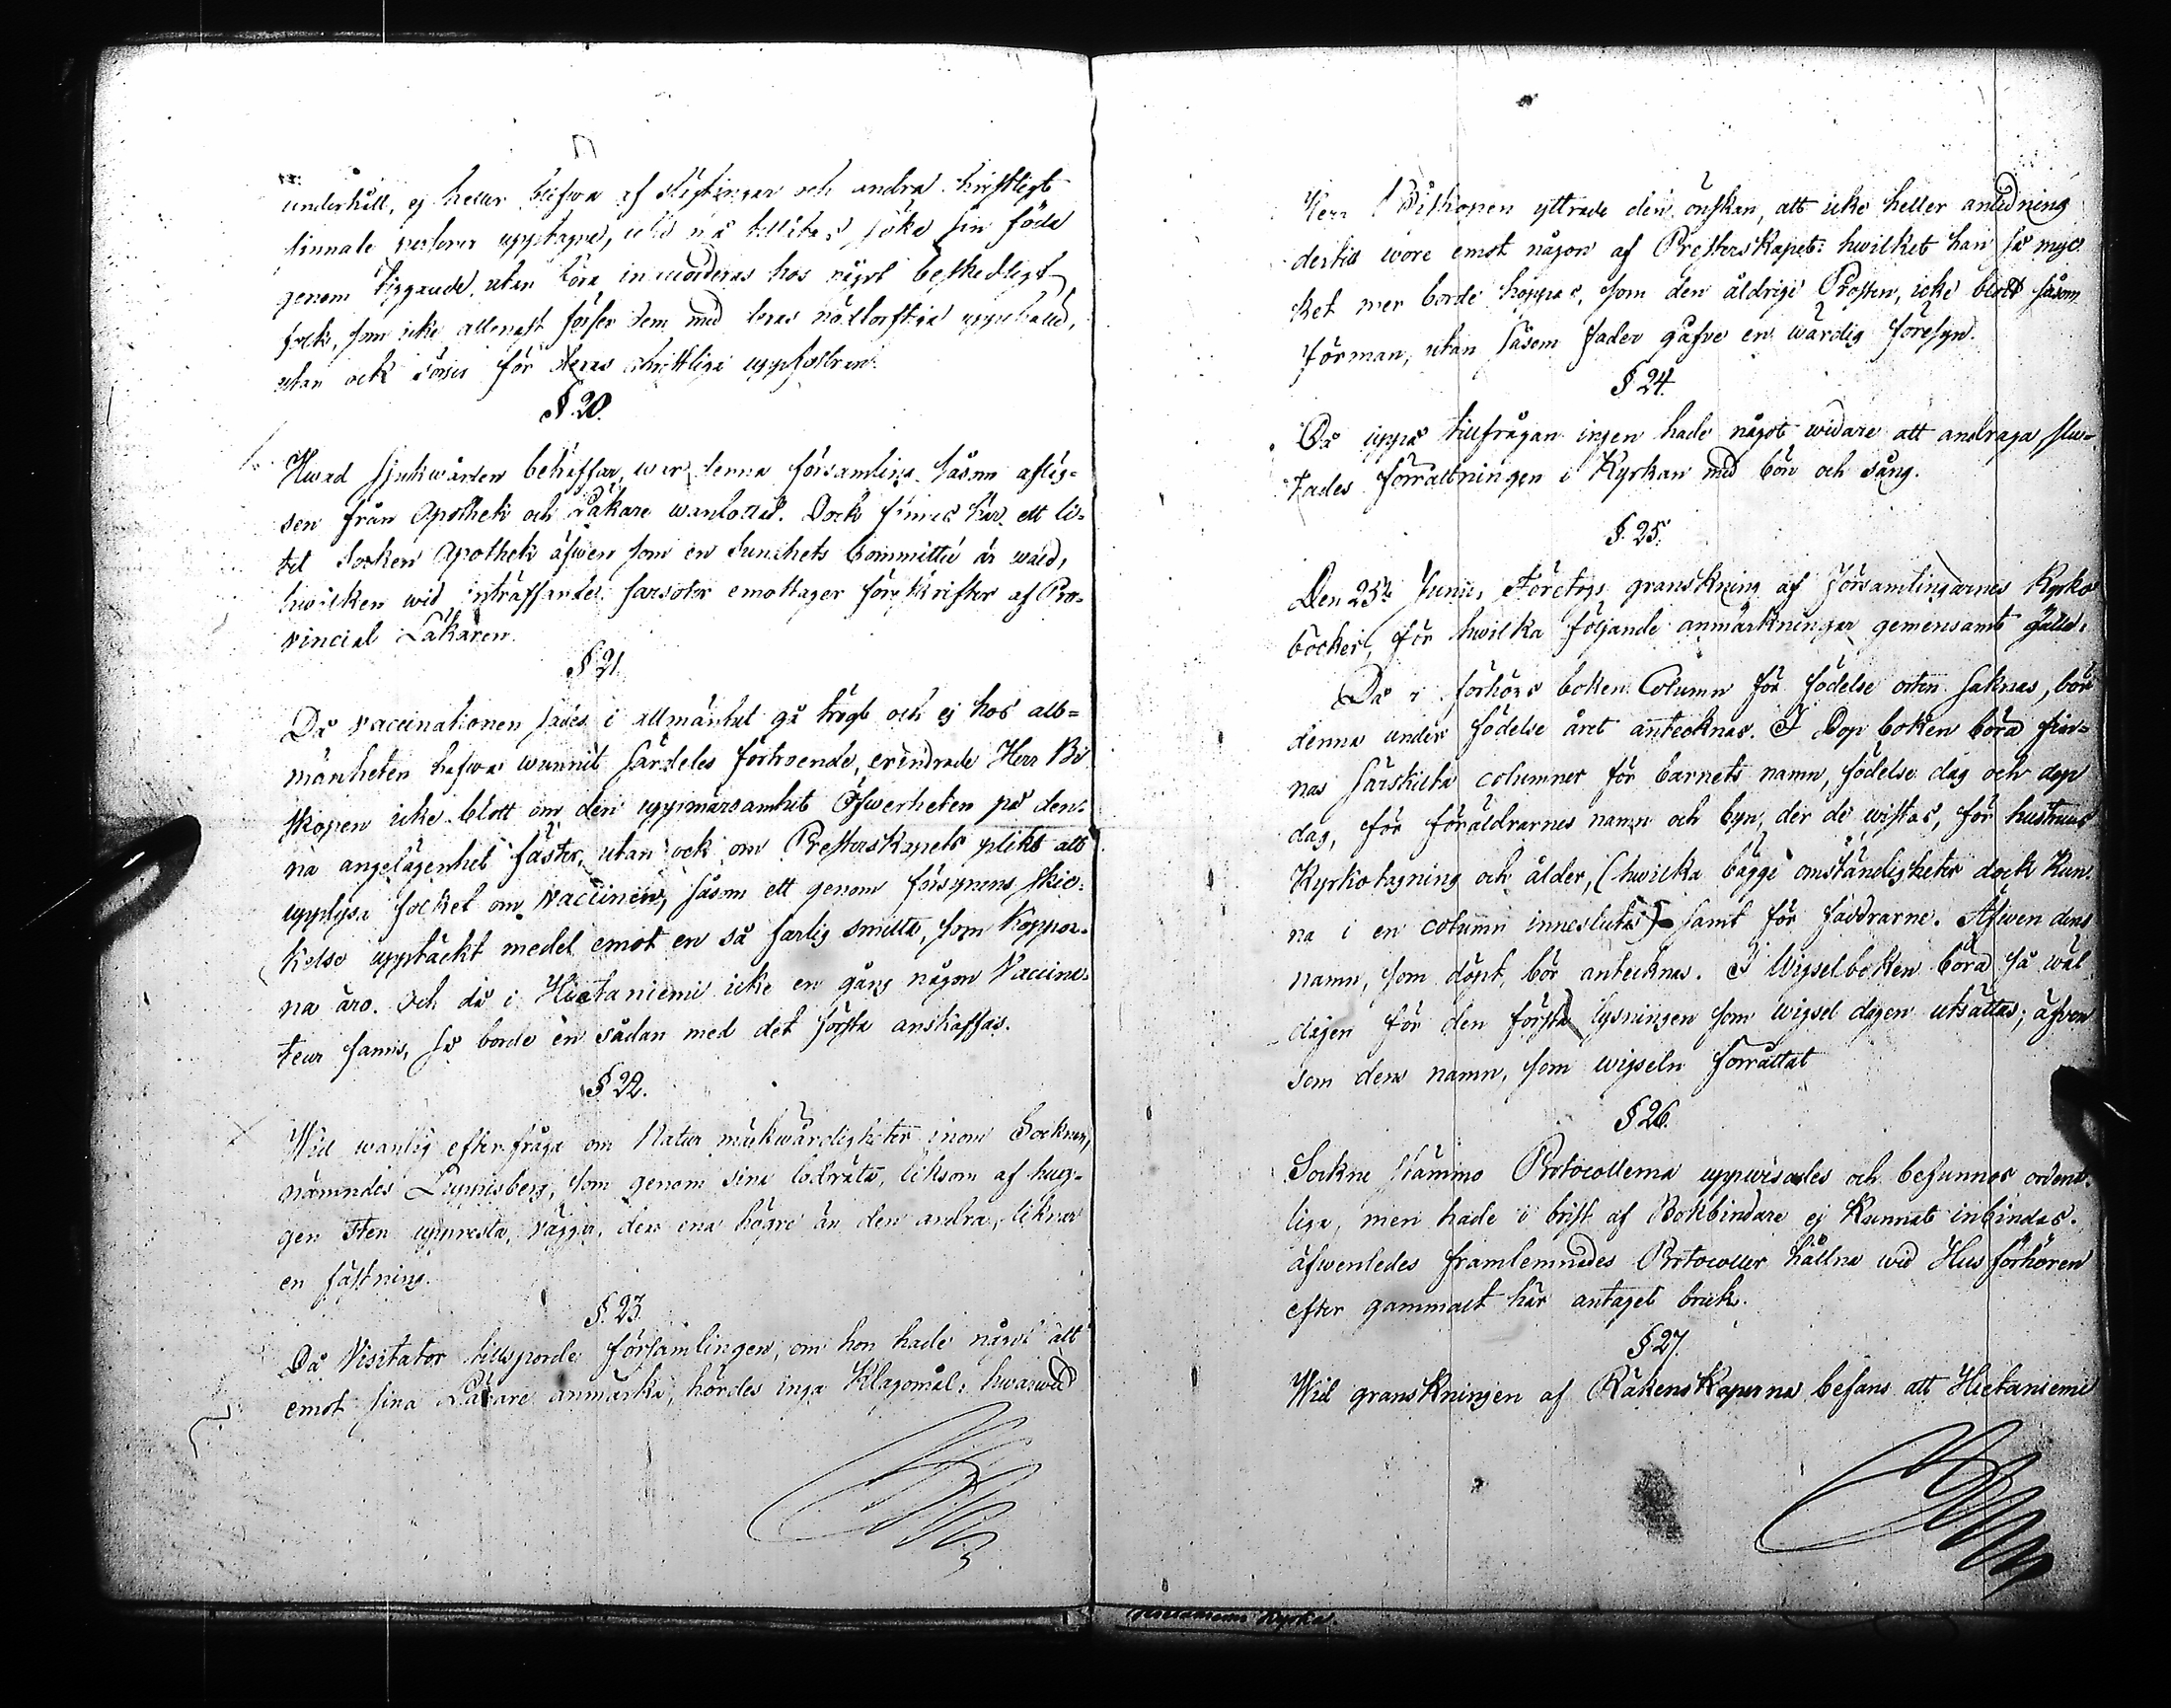 underhåll, ej heller blifwa af slägtingar och andra christligt
sinnade personer upptagne, icke må tillåtas söka sin föda
genom tiggande, utan böra inackorderas hos något beskedligt
folk, som icke allenast förser dem med deras nödtorftiga uppehälle,
utan ock sörjer för deras christliga uppfostran.
§ 20.
Hwad sjukwården beträffar, wore denna församling såsom afläg-
sen från Apothek och Läkare wanlottad. Dock finnes här ett li-
tet Socken Apothek äfwen som en Sundhets Committé är wald,
hwilken wid inträffande farsoter emottager föreskrifter af Pro-
vincial Läkaren.
§ 21.
Då vaccinationen sades i allmänhet gå trögt och ej hos all-
mänheten hafwa wunnit särdeles förtroende, erindrade Herr Bi
skopen icke blott om den uppmärsamhet Öfwerheten på den-
na angelägenhet fäster, utan ock om Presterskapets pligt att
upplysa folket om Vaccinen, såsom ett genom försynens skic-
kelse upptäckt medel emot en så farlig smitta, som Koppor-
na äro. Och då i Hietaniemi icke en gång någon Vaccina-
teur fanns, så borde en sådan med det första anskaffas.
§ 22.
Wid wanlig efterfråga om Natur märkwärdigheter inom Socknen,
nämndes Luppioberg, som genom sina lodräta, liksom af hug-
gen sten uppresta, väggar, den ena högre än den andra, liknar
en fästning.
§ 23.
Då Visitator tillsporde församlingen, om hon hade något att
emot sina Lärare anmärka, hördes inga Klagomål; hwarwid
Herr Biskopen yttrade den önskan, att icke heller anledning
dertill wore emot någon af Presterskapet: hwilket han så myc
ket mer borde hoppas, som den åldrige Prosten, icke blott såsom
Förman, utan såsom fader gåfve en wärdig föresyn.
§ 24.
Då uppå tillfrågan ingen hade något widare att andraga slu-
tades förrättningen i Kyrkan med bön och sång.
§. 25.
Den 25te Junii, företogs granskning af Församlingarnes Kyrko
böcker, för hwilka följande anmärkningar gemensamt gälla:
Då i förhörs boken Column för födelse orten saknas, bör
denna under födelse året antecknas. I Dop boken böra fin-
nas särskilta columner för barnets namn, födelse dag och dop
dag, för föräldrarnes namn och byn, der de wistas, för hustruns
Kyrkotagning och ålder, (hwilka bägge omständigheter dock kun-
na i en column inneslutas) samt för faddrarne. Äfwen dens
namn, som döpt, bör antecknas. I Wigselboken böra så wäl
dagen för den första lysningen som wigsel dagen utsättas; äfven
som dens namn, som wigseln förrättat
§ 26.
Sockne stämmo Protocollerna uppwisades och befunnos ordent-
liga, men hade i brist af Bokbindare ej kunnat inbindas.
äfwenledes framlemnades Protocoller hållna wid Husförhören
efter gammalt här antaget bruk.
§ 27.
Wid granskningen af Räkenskaperna befans att Hietaniemi
Kyrka